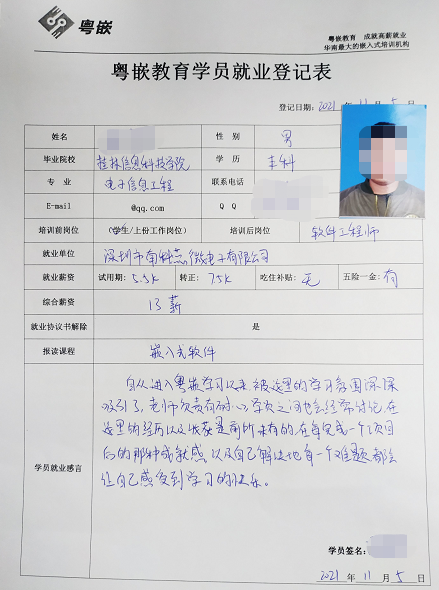 粤嵌
粤嵌教育 成就高薪就业
华南最大的嵌入式培训机构
粤嵌教育学员就业登记表
登记日期：2021 年 11 月 5 日
姓名 性 别 男
毕业院校 桂林信息科技学院 学 历 本科
专 业 电子信息工程 联系电话
E-mail @qq.com Q Q
培训前岗位 （学生/上份工作岗位） 培训后岗位 软件工程师
就业单位 深圳市南科芯微电子有限公司
就业薪资 试用期：5.5k 转正：7.5k 吃住补贴：无 五险一金：有
综合薪资 13薪
就业协议书解除 是
报读课程 嵌入式软件
学员就业感言
自从进入粤嵌学习以来 被这里的学习氛围深深
吸引了，老师负责有耐心，学员之间也会经常讨论，在
这里的经历以及收获是前所未有的，在每完成一个项目
后的那种成就感，以及自己解决地每一个难题都会
让自己感受到学习的快乐。
学员签名：
2021 年 11 月 5 日